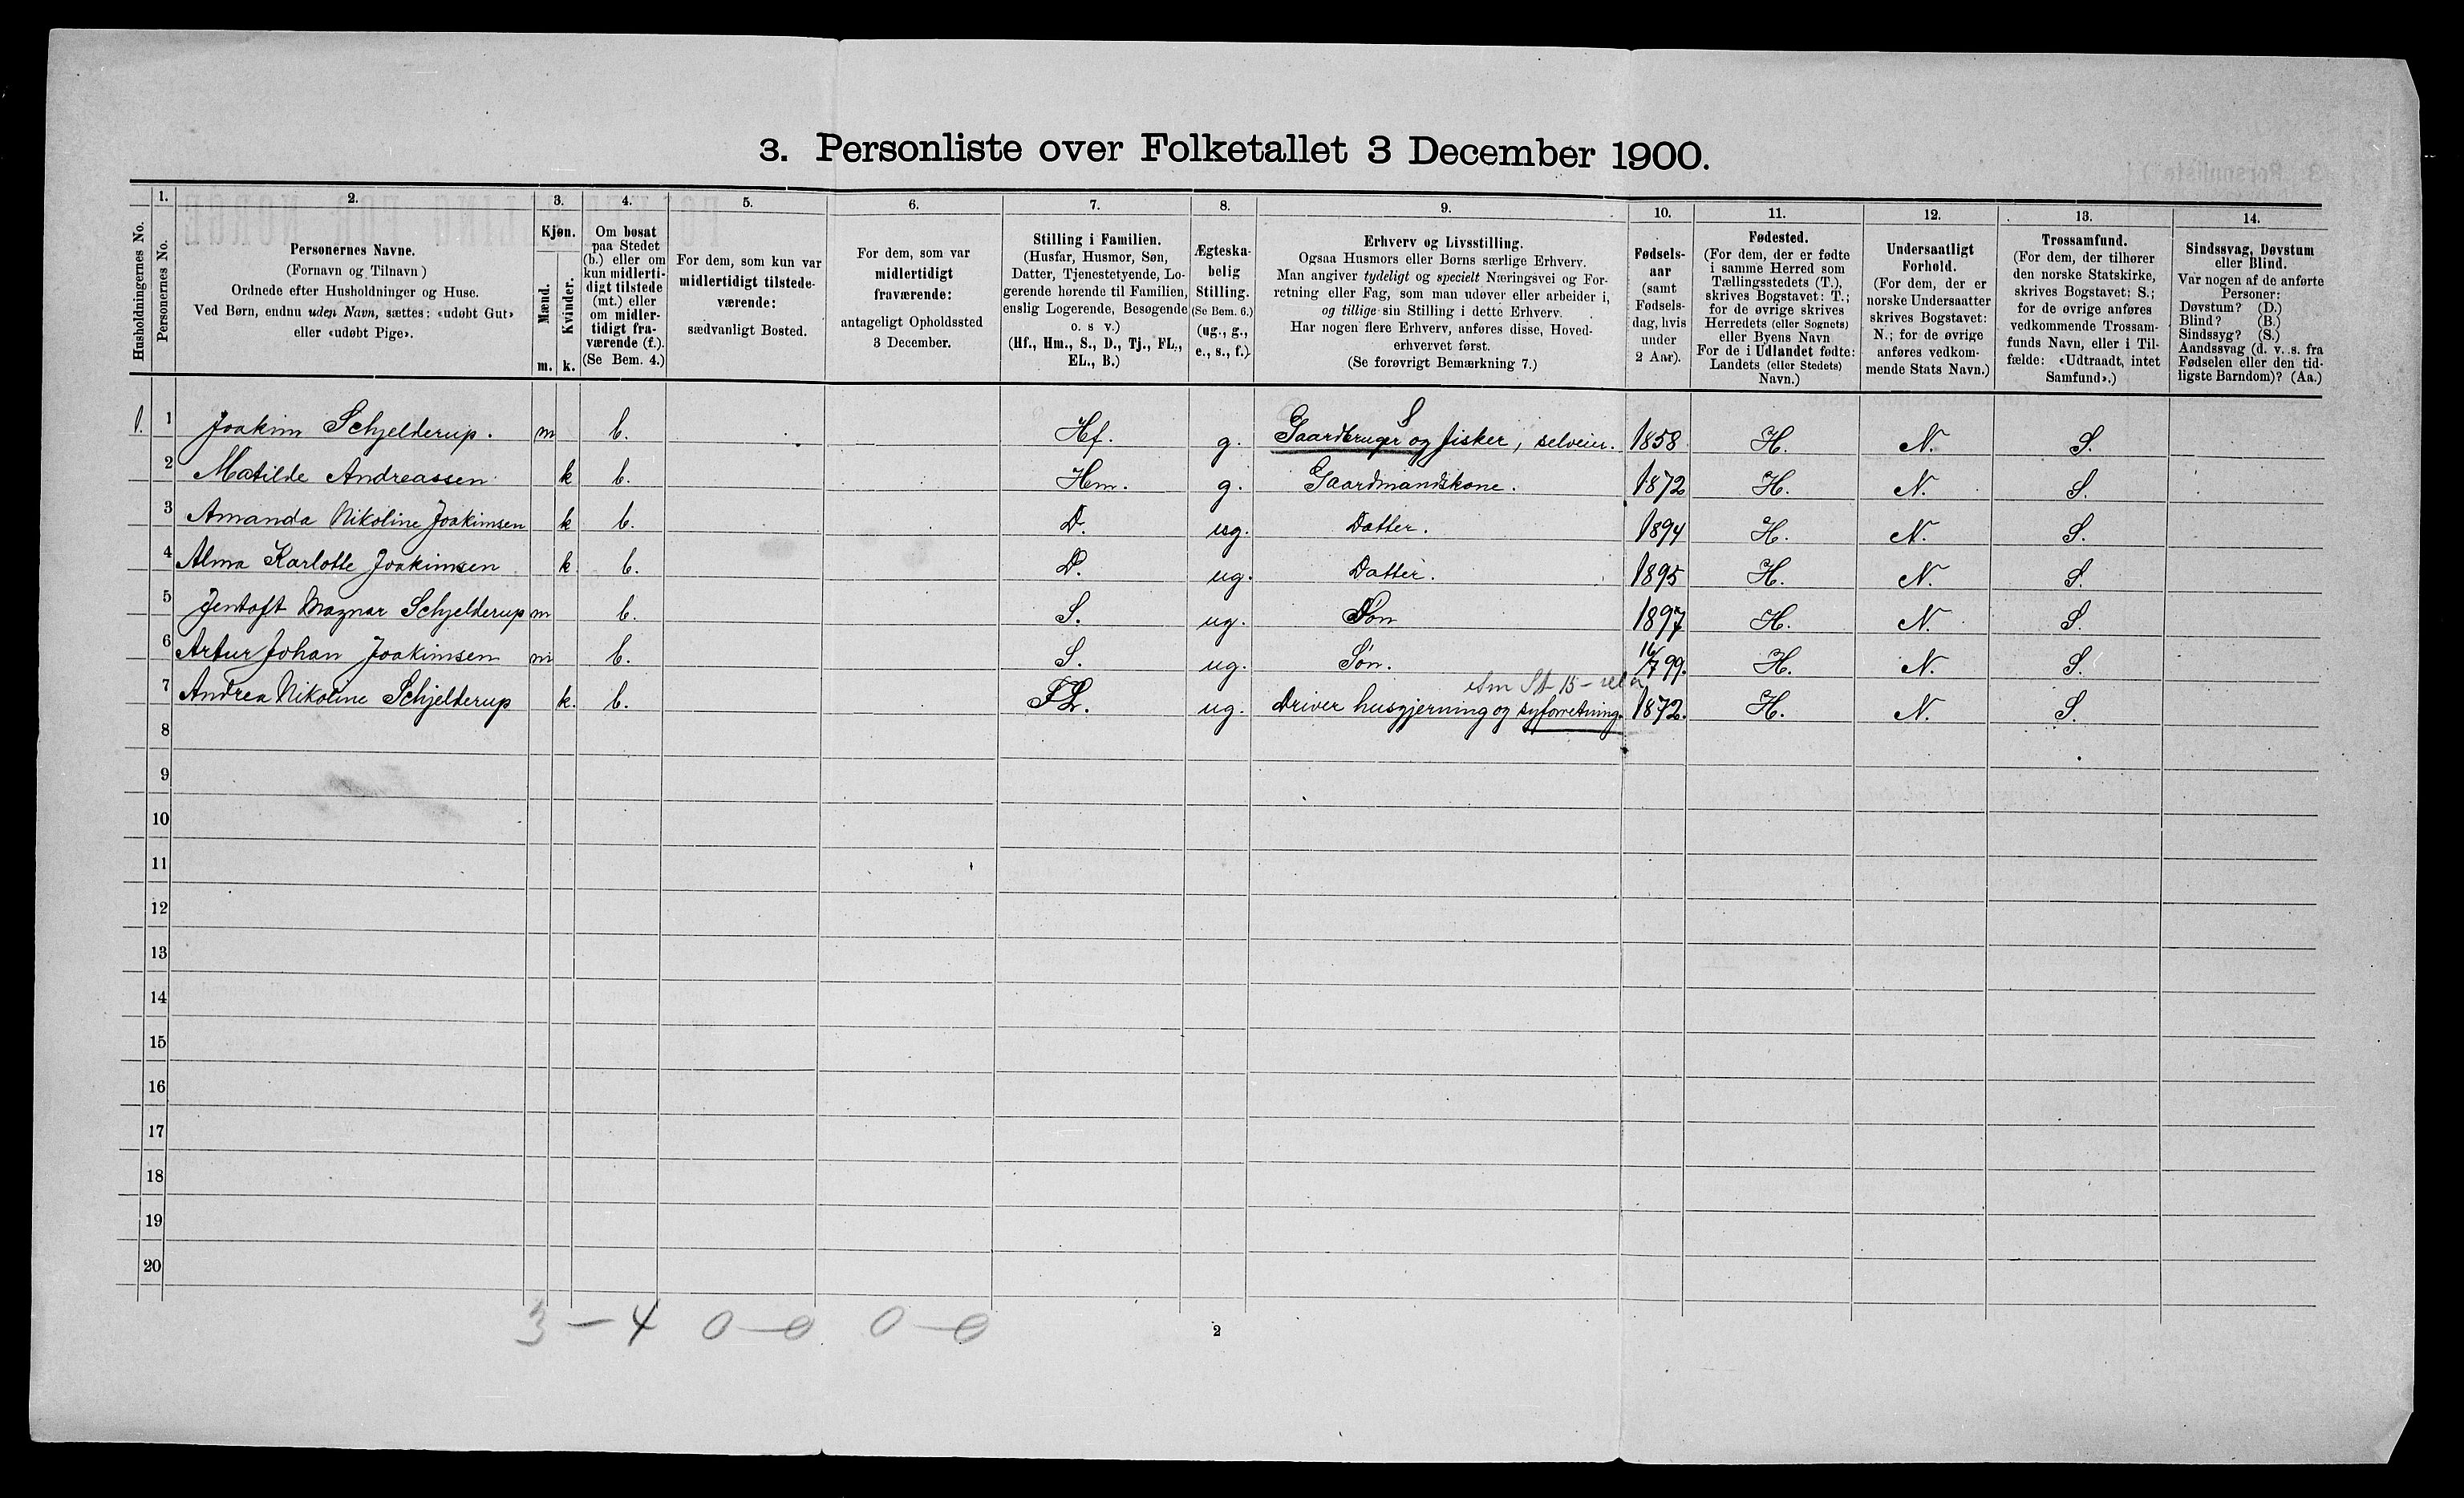 3. Personliste over Folketallet 3 December 1900.
Husholdningernes No.
1.
Personernes No.
2.
Personernes Navne.
(Fornavn og Tilnavn )
Ordnede efter Husholdninger og Huse.
Ved Børn, endnu uden Navn, sættes: «udøbt Gut»
eller «udøbt Pige».
3.
Kjøn.
Mænd.
m.
Kvinder.
k.
4.
Om bosat
paa Stedet
(b.) eller om
kun midlerti-
digt tilstede
(mt.) eller
om midler-
tidigt fra-
værende (f.).
(Se Bem. 4.)
5.
For dem, som kun var
midlertidigt tilstede-
værende:
sædvanligt Bosted.
6.
For dem, som var
midlertidigt
fraværende:
antageligt Opholdssted
3 December.
7.
Stilling i Familien.
(Husfar, Husmor, Søn,
Datter, Tjenestetyende, Lo-
gerende hørende til Familien,
enslig Logerende, Besøgende
o. s v.)
(Hf., Hm., S., D., Tj., FL.,
EL., B.)
8.
Ægteska-
belig
Stilling.
(Se Bem. 6.)
(ug., g.,
e., s., f.)
9.
Erhverv og Livsstilling.
Ogsaa Husmors eller Børns særlige Erhverv.
Man angiver tydeligt og specielt Næringsvei og For-
retning eller Fag, som man udøver eller arbeider i,
og tillige sin Stilling i dette Erhverv.
Har nogen flere Erhverv, anføres disse, Hoved-
erhvervet først.
(Se forøvrigt Bemærkning 7.)
10.
Fødsels-
aar
(samt
Fødsels-
dag, hvis
under
2 Aar).
11.
Fødested.
(For dem, der er fødte
i samme Herred som
Tællingsstedets (T.),
skrives Bogstavet: T.;
for de øvrige skrives
Herredets (eller Sognets)
eller Byens Navn
For de i Udlandet fødte:
Landets (eller Stedets)
Navn.)
12.
Undersaatligt
Forhold.
(For dem, der er
norske Undersaatter
skrives Bogstavet:
N.; for de øvrige
anføres vedkom-
mende Stats Navn.)
13.
Trossamfund.
(For dem, der tilhører
den norske Statskirke,
skrives Bogstavet: S.;
for de øvrige anføres
vedkommende Trossam-
funds Navn, eller i Til-
fælde: «Udtraadt, intet
Samfund».)
14.
Sindssvag, Døvstum
eller Blind.
Var nogen af de anførte
Personer:
Døvstum? (D.)
Blind? (B.)
Sindssyg? (S.)
Aandssvag (d. v. s. fra
Fødselen eller den tid-
ligste Barndom)? (Aa.)
1. 1 Joakim Schjelderup. m b. Hf. g. Gaardbruger og fisker, selveier. 1858 H. N. S.
2 Matilde Andreassen k b. Hm. g. Gaardmandskone. 1872 H. N. S.
3 Amanda Nikoline Joakimsen k b. D. ug. Datter. 1894 H. N. S.
4 Alma Karlotte Joakimsen k b. D. ug. Datter. 1895 H. N. S.
5 Jentoft Magnar Schjelderup m b. S. ug. Søn 1897 H. N. S.
6 Artur Johan Joakimsen m b. S. ug. Søn. 16/7 99. H. N. S.
7 Andrea Nikoline Schjelderup k. b. FL. ug. driver husgjerning og syforretning. 1872. H. N. S.
8
9
10
11
12
13
14
15
16
17
18
19
20
3 – 4 0 – 0 0 – 0
2